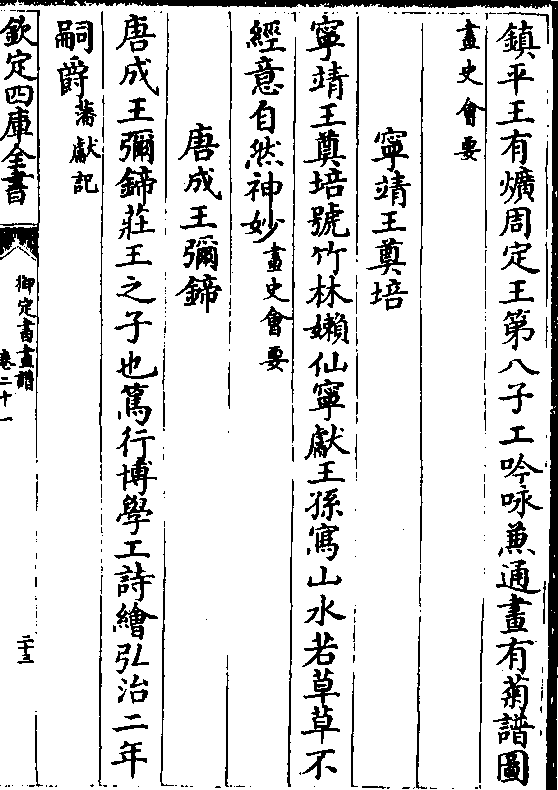 鎮平王有爌周定王第八子工吟咏兼通畫有菊譜圖
畫史會要
寧靖王奠培
寧靖王奠培號竹林嬾仙寧獻王孫寫山水若草草不
經意自然神妙畫史會要
唐成王彌鍗
唐成王彌鍗莊王之子也篤行博學工詩繪弘治二年
嗣爵藩獻記
欽定四庫全書
御定書畫譜
卷二十一
二十三